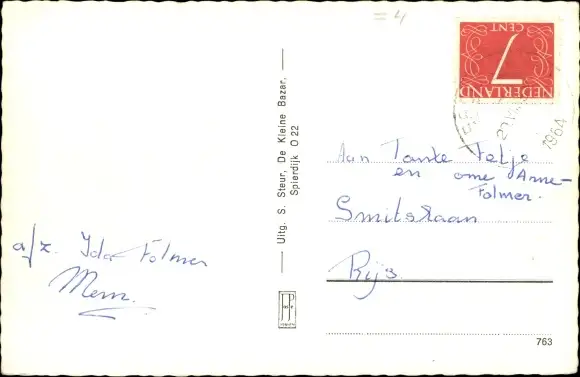 = 4
7
CENT
NEDERLAND
1964
Aan Tante Tetje
en ome Anne
Folmer.
Smitslaan
Rijs
a/z. Ida Folmer
Mem.
Uitg. S. Steur, De Kleine Bazar,
Spierdijk O 22
763